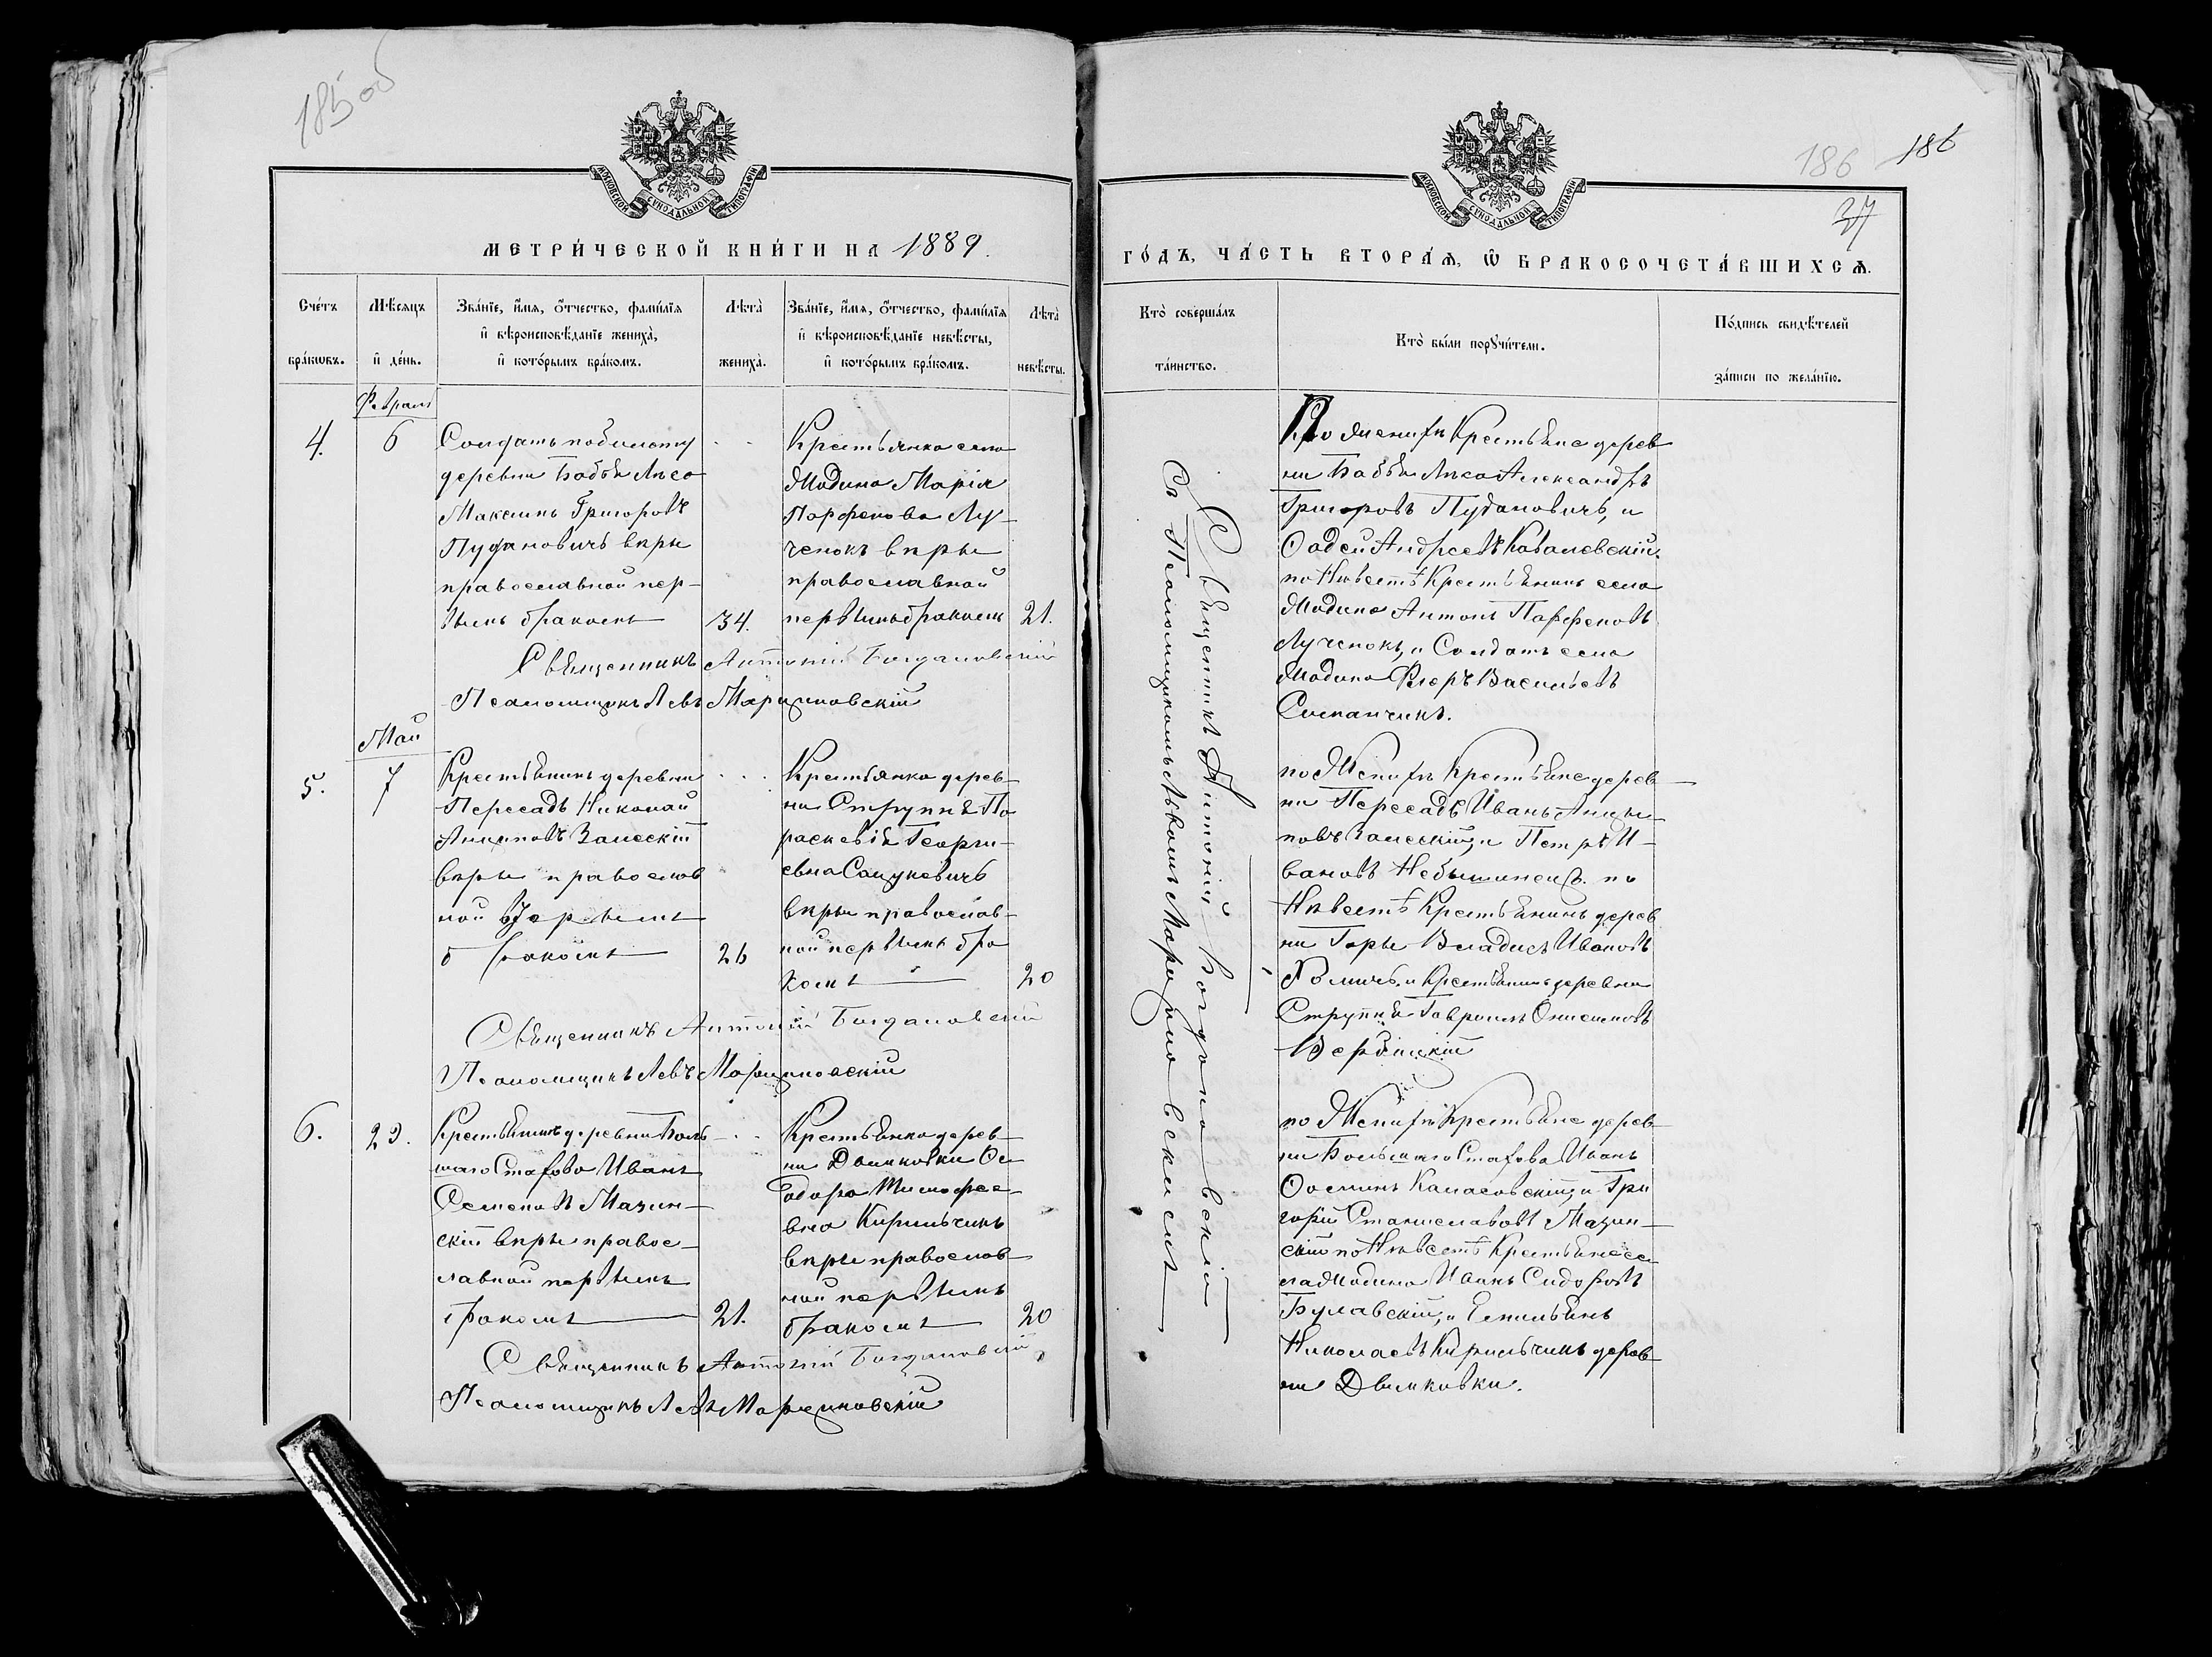 185 об
МОСКОВСКОЙ СУНОДАЛЬНОЙ ТИПОГРАФІИ
МЕТРИ́ЧЕСКОЙ КНИ́ГИ НА 1889.
Сче́тъ бра́кωвъ.
Мѣ́сяцъ и де́нь.
Зва́нїе, и́мя, ѻ́тчество, фами́лїя
и вѣроисповѣ́данїе жениха̀,
и кото́рымъ бра́комъ.
Лѣта̀ жениха̀.
Зва́нїе, и́мя, ѻ́тчество, фами́лїя
и вѣроисповѣ́данїе невѣ́сты,
и кото́рымъ бра́комъ.
Лѣта̀ невѣ́сты.
Февраль
4.
6
Солдатъ по билету
деревни Бабья Лѣса
Максимъ Григоровъ
Пудановичъ вѣры
православной пер-
вымъ бракомъ
34.
Крестьянка села
Модина Марія
Парфенова Лу-
ченокъ вѣры
православной
первымъ бракомъ
21.
Священникъ Антоній Богдановскій
Псаломщикъ Левъ Марциновскій
Май
5.
7
Крестьянинъ деревни
Пересадъ Николай
Залескій
вѣры православ
ной первымъ
бракомъ
26
Крестьянка дерев-
ни Струпня Па
раскевія Георги-
евна Сацукевичъ
вѣры православ-
ной первымъ бра
комъ
20
Священникъ Антоній Богдановскій
Псаломщикъ Левъ Марциновскій
6.
29.
Крестьянинъ деревни Боль-
шаго Стахова Иванъ
Семеновъ Мазин-
скій вѣры правос-
лавной первымъ
бракомъ
21.
Крестьянка дерев-
ни Двинковки Ѳе
одора Тимофее-
вна Кирильчикъ
вѣры православ-
ной первымъ
бракомъ
20
Священникъ Антоній Богдановскій
Псаломщикъ Левъ Марциновскій
186 186
37
МОСКОВСКОЙ СУНОДАЛЬНОЙ ТИПОГРАФІИ
ГО́ДЪ, ЧА́СТЬ ВТОРА́Ѧ, Ѡ БРАКОСОЧЕТА́ВШИХСѦ.
Кто̀ соверша́лъ
та́инство.
Кто̀ бы́ли порꙋчи́тели.
По́дпись свидѣ́телей
за́писи по жела́нїю.
Священникъ Антоній Богдановскій
Съ Псаломщикомъ Львомъ Марциновскимъ
По Женихѣ Крестьяне дерев
ни Бабья Лѣса Александръ
Григоровъ Пудановичъ, и
Фадей Андреевъ Ковалевскій.
по Невестѣ Крестьянинъ села
Модина Антонъ Парфеновъ
Лученокъ, и Солдатъ села
Модина Васильевъ
по Женихѣ Крестьяне дерев-
ни Пересадъ Иванъ
Залескій, и Петръ И-
вановъ по
Невестѣ Крестьянинъ дерев
ни Горы Ивановъ
и Крестьянинъ деревни
Струпня Гавріилъ Онисимовъ
Вербицкій
по Женихѣ Крестьяне дерев-
ни Большаго Стахова Иванъ
Ѳоминъ Каласовскій, и Гри
горій Станиславовъ Мазин-
скій по Невестѣ Крестьяне се
ла Модина Иванъ Сидоровъ
Булавскій, и Емильянъ
Николаевъ Кирильчикъ дерев
ни Двинковки.